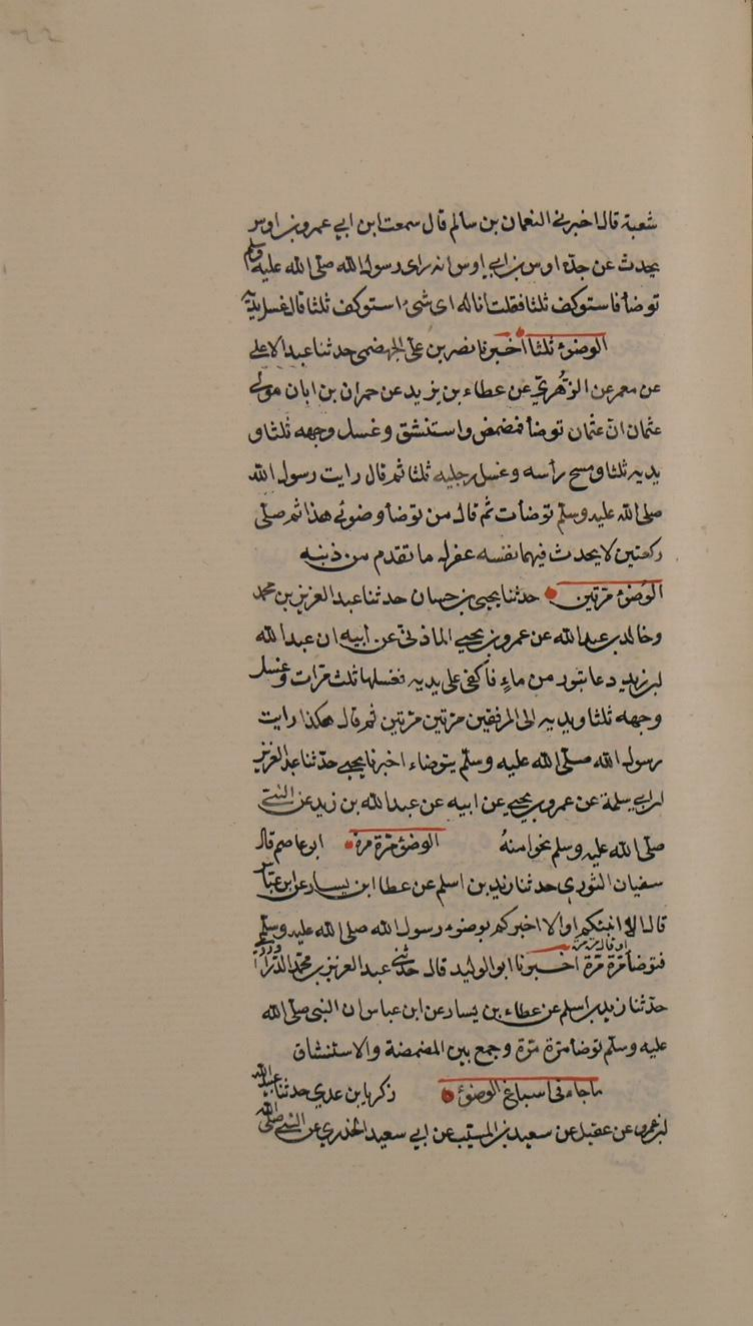 شعبة قال اخبرني النعمان بن سالم قال سمعت ابن ابي عمرو بن اوس
يحدث عن جده اوس بن ابي اوس انه راى رسول الله صلى الله عليه وسلم
توضأ فاستوكف ثلثا فقلت اناله اى شئ استوكف ثلثا قال غسل يديه
الوضوء ثلثا اخبرنا نصر بن على الجهضمى حدثنا عبد الاعلى
عن معمر عن الزُهْرِيّ عن عطاء بن يزيد عن حمران بن ابان مولى
عثمان انّ عثمان توضأ فمضمض واستنشق وغسل وجهه ثلثا و
يديه ثلثا ومسح برأسه وغسل رجليه ثلثا ثم قال رايت رسول الله
صلى الله عليه وسلم توضأت ثم قال من توضأ وضوئى هذا ثم صلى
ركعتين لا يحدث فيهما نفسه غفر له ما تقدم من ذنبه
الوضوء مرتين حدثنا يحيى بن حسان حدثنا عبد العزيز بن محمد
وخالد بن عبد الله عن عمرو بن يحيى الماذنى عن ابيه ان عبد الله
بن زيد دعا بتور من ماءٍ فاكفى على يديه فغسلها ثلث مرّات وغسل
وجهه ثلثا ويديه الى المرفقين مرّتين مرّتين ثم قال هكذا رايت
رسول الله صلّى الله عليه وسلم يتوضاء اخبرنا يحيى حدّثنا عبد العزيز
بن ابى سلمة عن عمرو بن يحيى عن ابيه عن عبد الله بن زيد عن النبى
صلى الله عليه وسلم نحوا منهُ الوضوء مرّة مرة ابو عاصم قال
سفيان الثورى حدثنا زيد بن اسلم عن عطا ابن يسار عن ابن عباس
قال الا انبئكم او الا اخبركم بوضوء رسول الله صلى الله عليه وسلم
فتوضأ مرّة مرّة او قال مرة مرة اخبرنا ابو الوليد قال حدّثنى عبد العزيز بن محمد الدراوردى
حدّثنا زيد بن اسلم عن عطاء بن يسار عن ابن عباس ان النبى صلى الله
عليه وسلم توضأ مرّة مرّة وجمع بين المضمضة والاستنشاق
ما جاء فى اسباغ الوضوء زكريا بن عدي حدثنا عبيد الله
بن عمرو عن عقيل عن سعيد بن المسيّب عن ابي سعيد الخدري عن النبى صلى الله